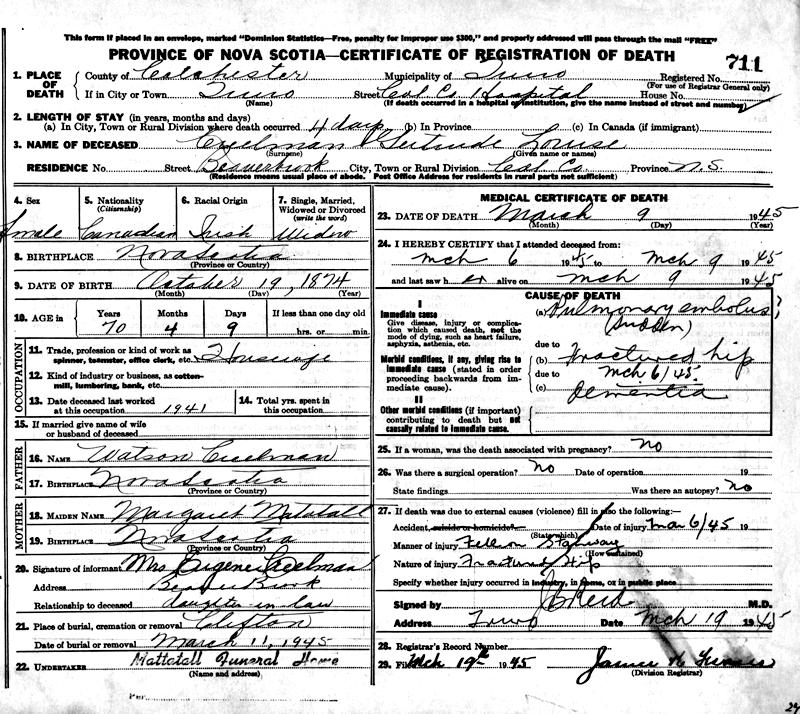 This form if placed in an envelope, marked "Dominion Statistics—Free, penalty for improper use $300," and properly addressed will pass through the mail "FREE"
PROVINCE OF NOVA SCOTIA—CERTIFICATE OF REGISTRATION OF DEATH
711
1. PLACE OF DEATH County of Colchester Municipality of Truro Registered No.
(For use of Registrar General only)
If in City or Town Truro Street Col. Co. Hospital House No.
(Name) (If death occurred in a hospital or institution, give the name instead of street and number)
2. LENGTH OF STAY (in years, months and days)
(a) In City, Town or Rural Division where death occurred 4 days (b) In Province (c) In Canada (if immigrant)
3. NAME OF DECEASED Creelman Gertrude Louise
(Surname) (Given name or names)
RESIDENCE No. Street Beaverbrook City, Town or Rural Division Col. Co. Province N.S.
(Residence means usual place of abode. Post Office Address for residents in rural parts not sufficient)
4. Sex 5. Nationality (Citizenship) 6. Racial Origin 7. Single, Married, Widowed or Divorced (write the word)
Female Canadian Irish Widow
8. BIRTHPLACE Nova Scotia
(Province or Country)
9. DATE OF BIRTH October 19, 1874
(Month) (Day) (Year)
10. AGE in Years Months Days If less than one day old
70 4 9 hrs. or min.
OCCUPATION
11. Trade, profession or kind of work as spinner, teamster, office clerk, etc. Housewife
12. Kind of industry or business, as cotton-mill, lumbering, bank, etc.
13. Date deceased last worked at this occupation 1941 14. Total yrs. spent in this occupation
15. If married give name of wife or husband of deceased
FATHER
16. NAME Watson Creelman
17. BIRTHPLACE Nova Scotia
(Province or Country)
MOTHER
18. MAIDEN NAME Margaret Matatall
19. BIRTHPLACE Nova Scotia
(Province or Country)
20. Signature of informant Mrs Eugene Creelman
Address Beaver Brook
Relationship to deceased daughter-in-law
21. Place of burial, cremation or removal Clifton
Date of burial or removal March 11, 1945
22. UNDERTAKER Mattatall Funeral Home
(Name and address)
Per
MEDICAL CERTIFICATE OF DEATH
23. DATE OF DEATH March 9 1945
(Month) (Day) (Year)
24. I HEREBY CERTIFY that I attended deceased from:
Mch 6 1945 to Mch 9 1945
and last saw h er alive on Mch 9 1945
CAUSE OF DEATH
I
Immediate cause (a) Pulmonary embolus?
Give disease, injury or complication which caused death, not the mode of dying, such as heart failure, asphyxia, asthenia, etc. (sudden)
due to
Morbid conditions, if any, giving rise to immediate cause (stated in order proceeding backwards from immediate cause). (b) Fractured hip
due to Mch 6/45.
(c) Dementia
II
Other morbid conditions (if important) contributing to death but not causally related to immediate cause.
25. If a woman, was the death associated with pregnancy? No
26. Was there a surgical operation? No Date of operation 19
State findings Was there an autopsy? No
27. If death was due to external causes (violence) fill in also the following:
Accident, suicide or homicide? Date of injury Mar 6/45 19
(State which)
Manner of injury Fell on Stairway
(How sustained)
Nature of injury Fractured Hip
Specify whether injury occurred in industry, in home, or in public place
Signed by M.D.
Address Truro Date Mch 19 1945
28. Registrar's Record Number
29. Filed Mch 19th 1945 James
(Division Registrar)